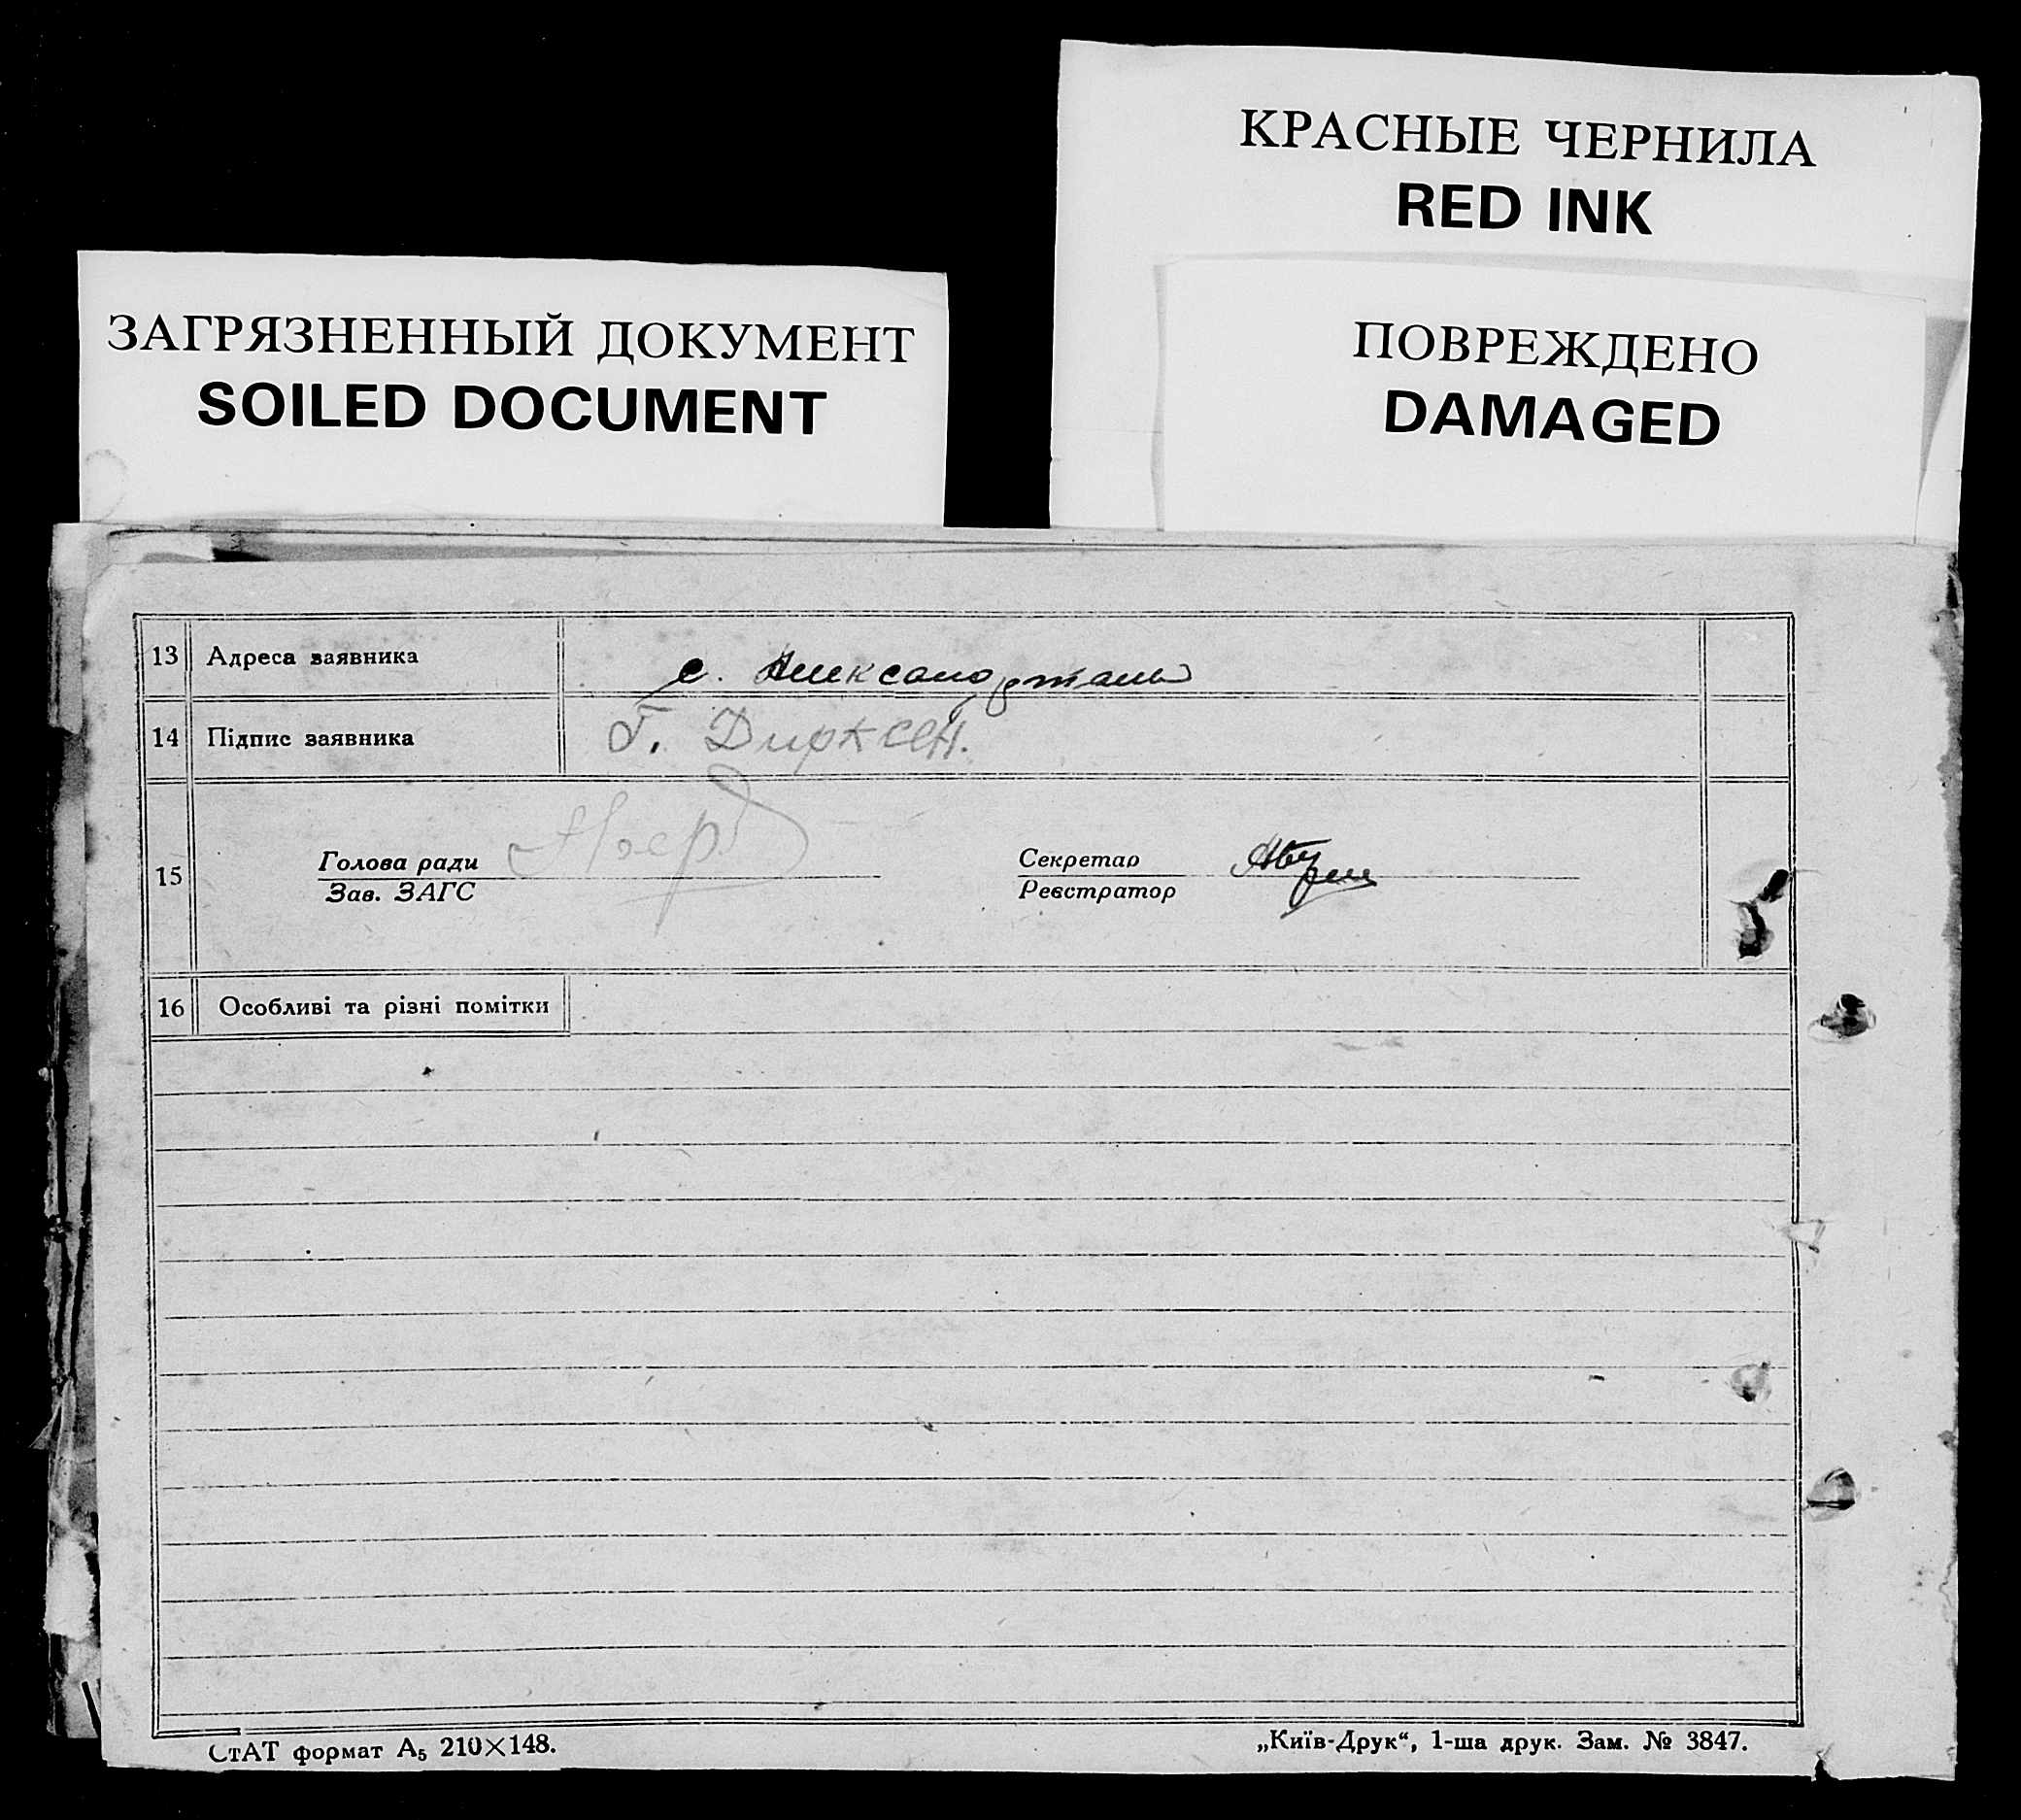 КРАСНЫЕ ЧЕРНИЛА
RED INK
ЗАГРЯЗНЕННЫЙ ДОКУМЕНТ
SOILED DOCUMENT
ПОВРЕЖДЕНО
DAMAGED
13 Адреса заявника с. Александрталь
14 Підпис заявника Г. Дирксен.
15
Голова ради
Зав. ЗАГС
Секретар
Реєстратор
16 Особливі та різні помітки
СтАТ формат А₅ 210×148.
„Київ-Друк“, 1-ша друк. Зам. № 3847.